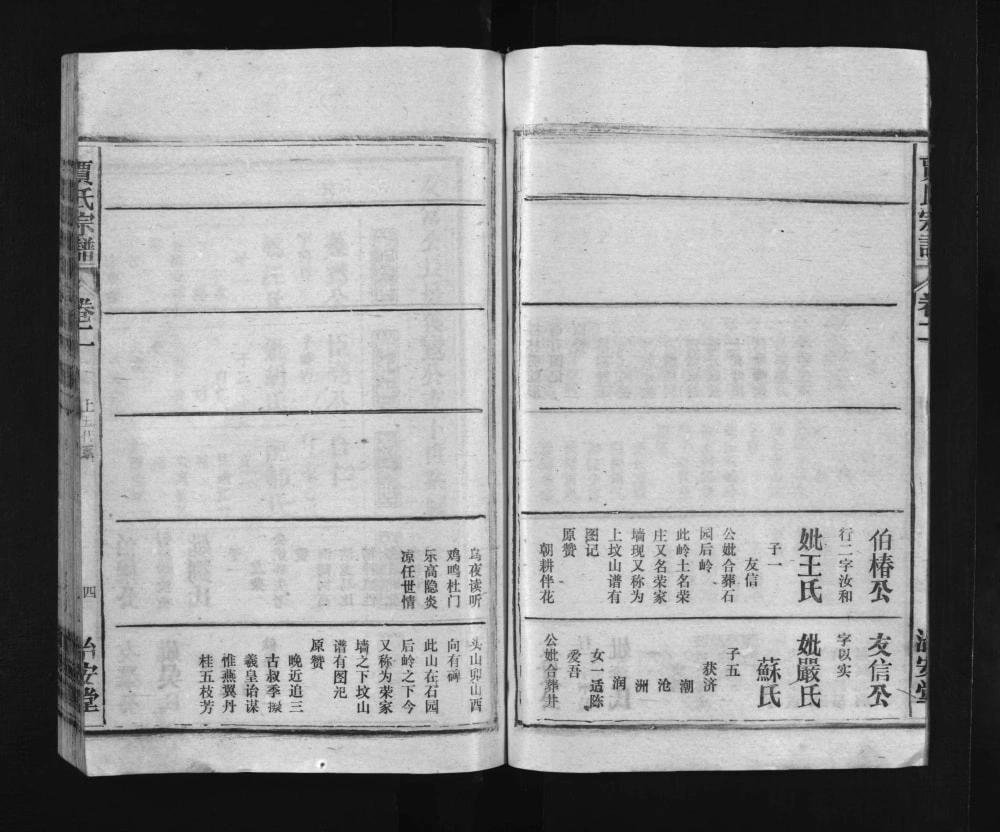 伯椿公
行二字汝和
妣王氏
子一
友信
公妣合葬石
园后岭
此岭土名荣
庄又名荣家
墙现又称为
上坟山谱有
图记
原赞
朝耕伴花
友信公
字以实
妣嚴氏
蘇氏
子五
获济
潮
沧
洲
润
女一适陈
爱吾
公妣合葬井
乌夜读听
鸡鸣杜门
乐高隐炎
凉任世情
头山卯山西
向有碑
此山在石园
后岭之下今
又称为荣家
墙之下坟山
谱有图汜
原赞
晚近追三
古叔季掇
羲皇诒谋
惟燕翼丹
桂五枝芳
賈氏宗譜
卷二
上五代系
四
治安堂